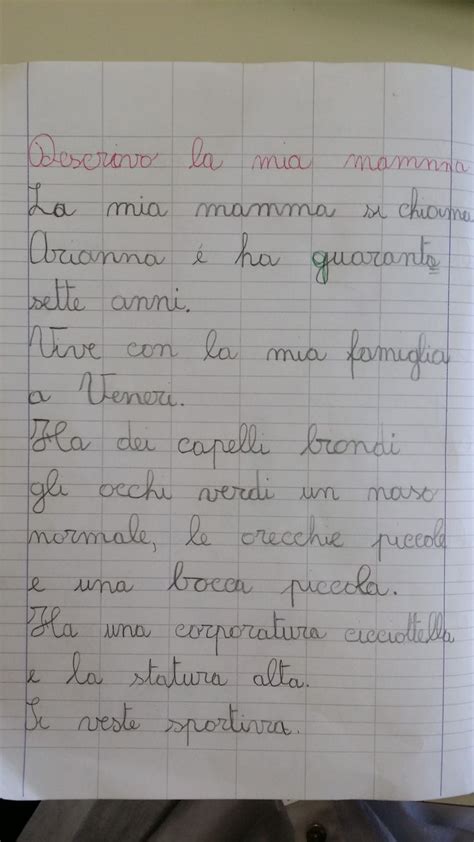 Descrivo la mia mamma
La mia mamma si chiama
Arianna é ha guarante
sette anni.
Vive con la mia famiglia
a Veneri.
Ha dei capelli biondi
gli occhi verdi un naso
normale, le orecchie piccole
e una bocca piccola.
Ha una corporatura cicciottella
e la statura alta.
Si veste sportiva.